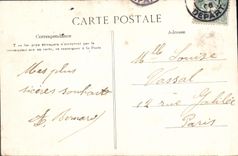 CARTE POSTALE
Correspondance
Adresse
Mes plus
sincères souhaits
Melle Louise
Vassal
12 rue Galilée
Paris
DEPART